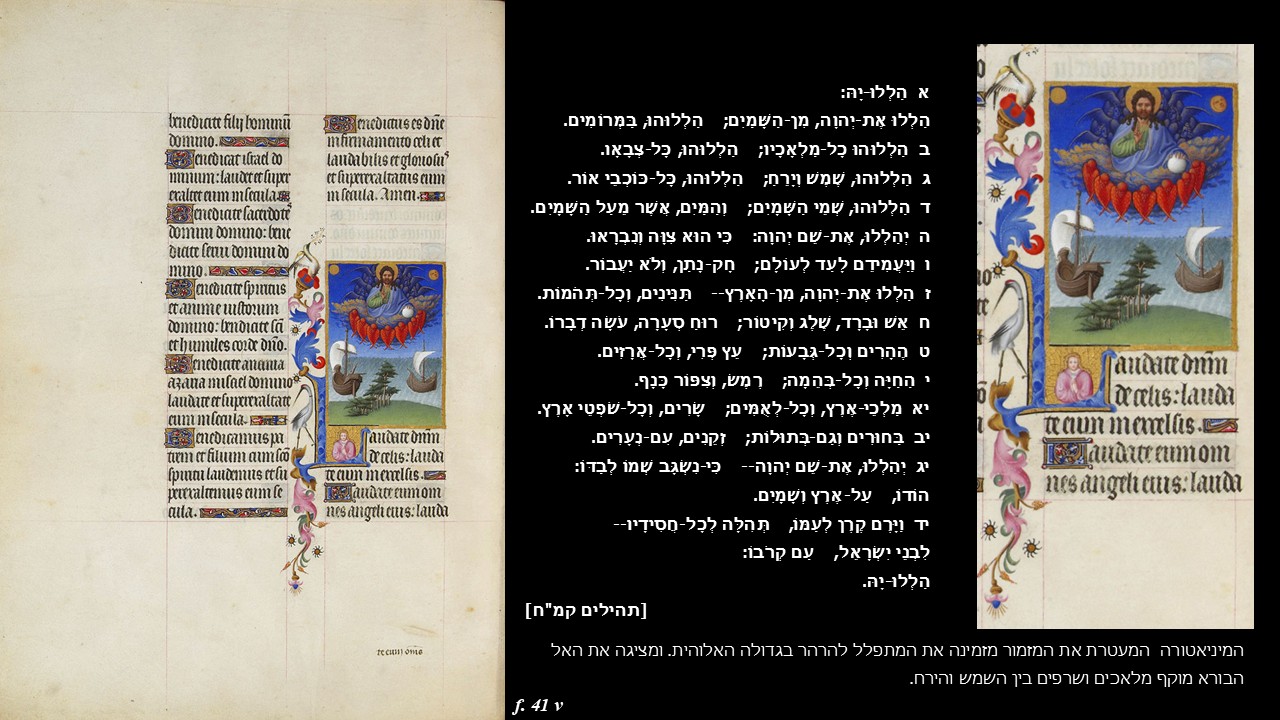 benedicite filij hominū
domino.
Benedicat israel do
minum: laudet et super
exaltet eum in secula.
Benedicite sacerdotes
domini domino: bene
dicite serui domini do
mino.
Benedicite spiritus
et anime iustorum
domino: benedicite sc̄i
et humiles corde dn̄o.
Benedicite anania
azaria misael domino
laudate et superexaltate
eum in secula.
Benedicamus pa
trem et filium cum sc̄o
spiritu laudemus et su
perexaltemus eum se
cula.
Benedictus es dn̄e
in firmamento celi et
laudabilis et gloriosus
et superexaltatus eum
in secula. Amen.
Laudate dn̄m
de celis: lauda
te eum in excelsis.
Laudate eum om
nes angeli eius: lauda
te eum om̄s
א הַלְלוּ-יָהּ:
הַלְלוּ אֶת-יְהוָה, מִן-הַשָּׁמַיִם; הַלְלוּהוּ, בַּמְּרוֹמִים.
ב הַלְלוּהוּ כָל-מַלְאָכָיו; הַלְלוּהוּ, כָּל-צְבָאָו.
ג הַלְלוּהוּ, שֶׁמֶשׁ וְיָרֵחַ; הַלְלוּהוּ, כָּל-כּוֹכְבֵי אוֹר.
ד הַלְלוּהוּ, שְׁמֵי הַשָּׁמָיִם; וְהַמַּיִם, אֲשֶׁר מֵעַל הַשָּׁמָיִם.
ה יְהַלְלוּ, אֶת-שֵׁם יְהוָה: כִּי הוּא צִוָּה וְנִבְרָאוּ.
ו וַיַּעֲמִידֵם לָעַד לְעוֹלָם; חָק-נָתַן, וְלֹא יַעֲבוֹר.
ז הַלְלוּ אֶת-יְהוָה, מִן-הָאָרֶץ-- תַּנִּינִים, וְכָל-תְּהֹמוֹת.
ח אֵשׁ וּבָרָד, שֶׁלֶג וְקִיטוֹר; רוּחַ סְעָרָה, עֹשָׂה דְבָרוֹ.
ט הֶהָרִים וְכָל-גְּבָעוֹת; עֵץ פְּרִי, וְכָל-אֲרָזִים.
י הַחַיָּה וְכָל-בְּהֵמָה; רֶמֶשׂ, וְצִפּוֹר כָּנָף.
יא מַלְכֵי-אֶרֶץ, וְכָל-לְאֻמִּים; שָׂרִים, וְכָל-שֹׁפְטֵי אָרֶץ.
יב בַּחוּרִים וְגַם-בְּתוּלוֹת; זְקֵנִים, עִם-נְעָרִים.
יג יְהַלְלוּ, אֶת-שֵׁם יְהוָה-- כִּי-נִשְׂגָּב שְׁמוֹ לְבַדּוֹ:
הוֹדוֹ, עַל-אֶרֶץ וְשָׁמָיִם.
יד וַיָּרֶם קֶרֶן לְעַמּוֹ, תְּהִלָּה לְכָל-חֲסִידָיו--
לִבְנֵי יִשְׂרָאֵל, עַם קְרֹבוֹ:
הַלְלוּ-יָהּ.
[תהילים קמ"ח]
Laudate dn̄m
de celis: lauda
te eum in excelsis.
Laudate eum om
nes angeli eius: lauda
המיניאטורה המעטרת את המזמור מזמינה את המתפלל להרהר בגדולה האלוהית. ומציגה את האל
הבורא מוקף מלאכים ושרפים בין השמש והירח.
f. 41 v